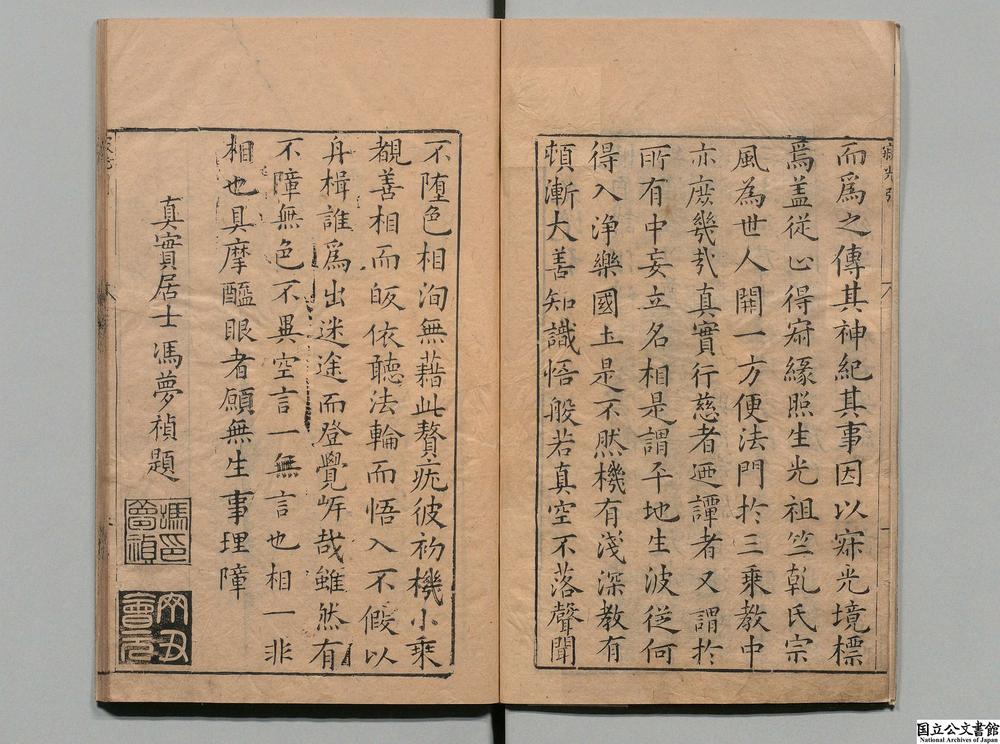 而爲之傳其神紀其事因以寂光境標
焉盖従心得寂緣照生光祖竺乾氏宗
風為世人開一方便法門於三乘教中
亦庶幾㢤真實行慈者迺譚者又謂於
所有中妄立名相是謂平地生波従何
得入淨樂國土是不然機有淺深教有
頓漸大善知識悟般若真空不落聲聞
不堕色相洵無藉此贅疣彼初機小乗
覩善相而皈依聽法輪而悟入不假以
舟楫誰爲出迷途而登覺岸哉雖然有
不障無色不異空言一無言也相一非
相也具摩醯眼者願無生事理障
真實居士馮夢禎題
馮印夢禎
丁丑會元
国立公文書館
National Archives of Japan